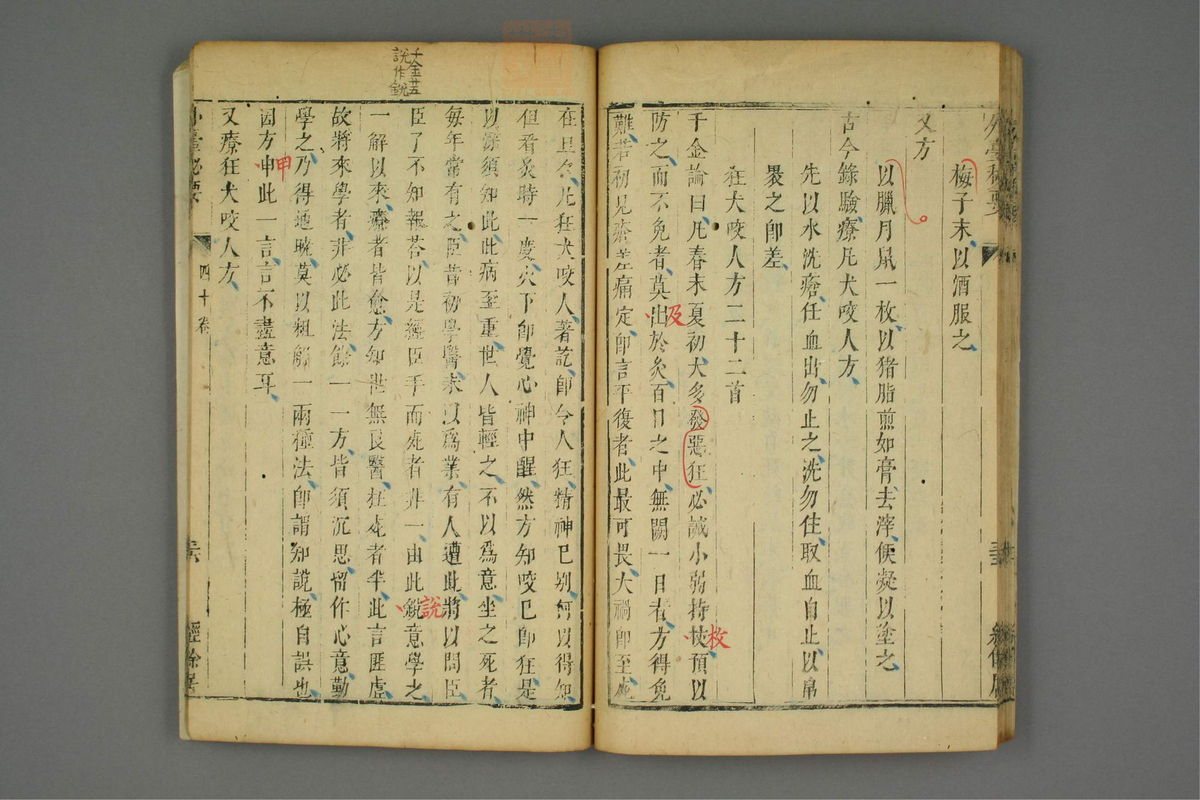 梅子末以酒服之
又方
以臘月鼠一枚以猪脂煎如膏去滓便凝以塗之
古今錄驗療凡犬咬人方
先以水洗瘡任血出勿止之洗勿住取血自止以帛
裹之卽差
狂犬咬人方二十二首
千金論曰凡春末夏初犬多發惡狂必誡小弱持杖預以
枚
防之而不免者莫出於灸百日之中無闕一日者方得免
及
難若初見瘡差痛定卽言平復者此最可畏大禍卽至
外臺秘要
四十卷
千金廿五
說作銳
在旦夕凡狂犬咬人著訖卽令人狂精神已别何以得知
但看灸時一度火下卽覺心神中醒然方知咬已卽狂是
以深須知此此病至重世人皆輕之不以爲意坐之死者
每年常有之臣昔初學醫未以爲業有人遭此將以問臣
臣了不知報荅以是經臣手而死者非一由此銳意學之
說
一解以來療者皆愈方知世無良醫狂死者半此言匪虛
故將來學者非必此法餘一一方皆須沉思留作心意勤
學之乃得通曉莫以粗解一兩種法卽謂知說極自誤也
因方申此一言言不盡意耳
申
又療狂犬咬人方